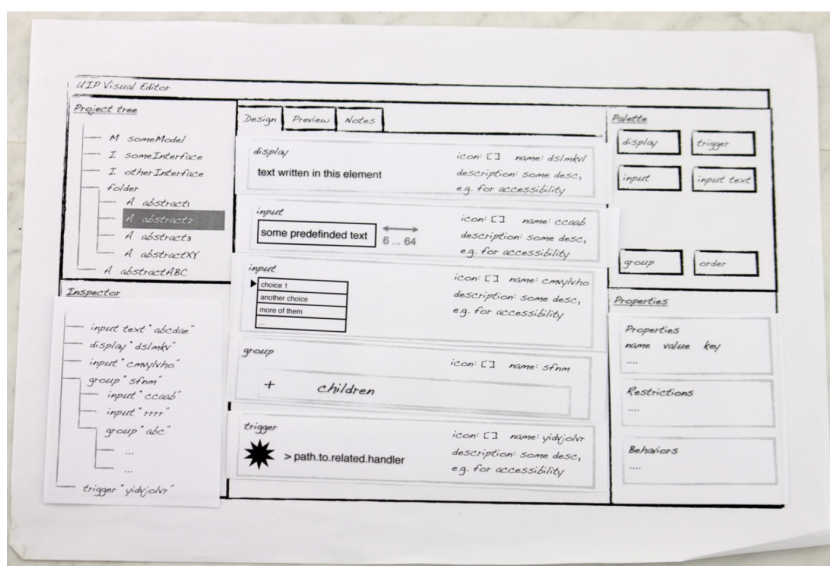 UIP Visual Editor
Project tree
M someModel
I someInterface
I otherInterface
folder
A abstract1
A abstract2
A abstract3
A abstractXY
A abstractABC
Inspector
input text "abcdae"
display "dslmkv"
input "cmvylvho"
group "sfnm"
input "ccaab"
input "rrrr"
group "abc"
...
...
trigger "yidvjolvr"
Design Preview Notes
display
text written in this element
icon: [] name: dslmkvl
description: some desc,
e.g. for accessibility
input
some predefinded text
6 ... 64
icon: [] name: ccaab
description: some desc,
e.g. for accessibility
input
choice 1
another choice
more of them
...
icon: [] name: cmvylvho
description: some desc,
e.g. for accessibility
group
icon: [] name: sfnm
+ children
trigger
> path.to.related.handler
icon: [] name: yidvjolvr
description: some desc,
e.g. for accessibility
Palette
display trigger
input input text
group order
Properties
Properties
name value key
....
Restrictions
....
Behaviors
....